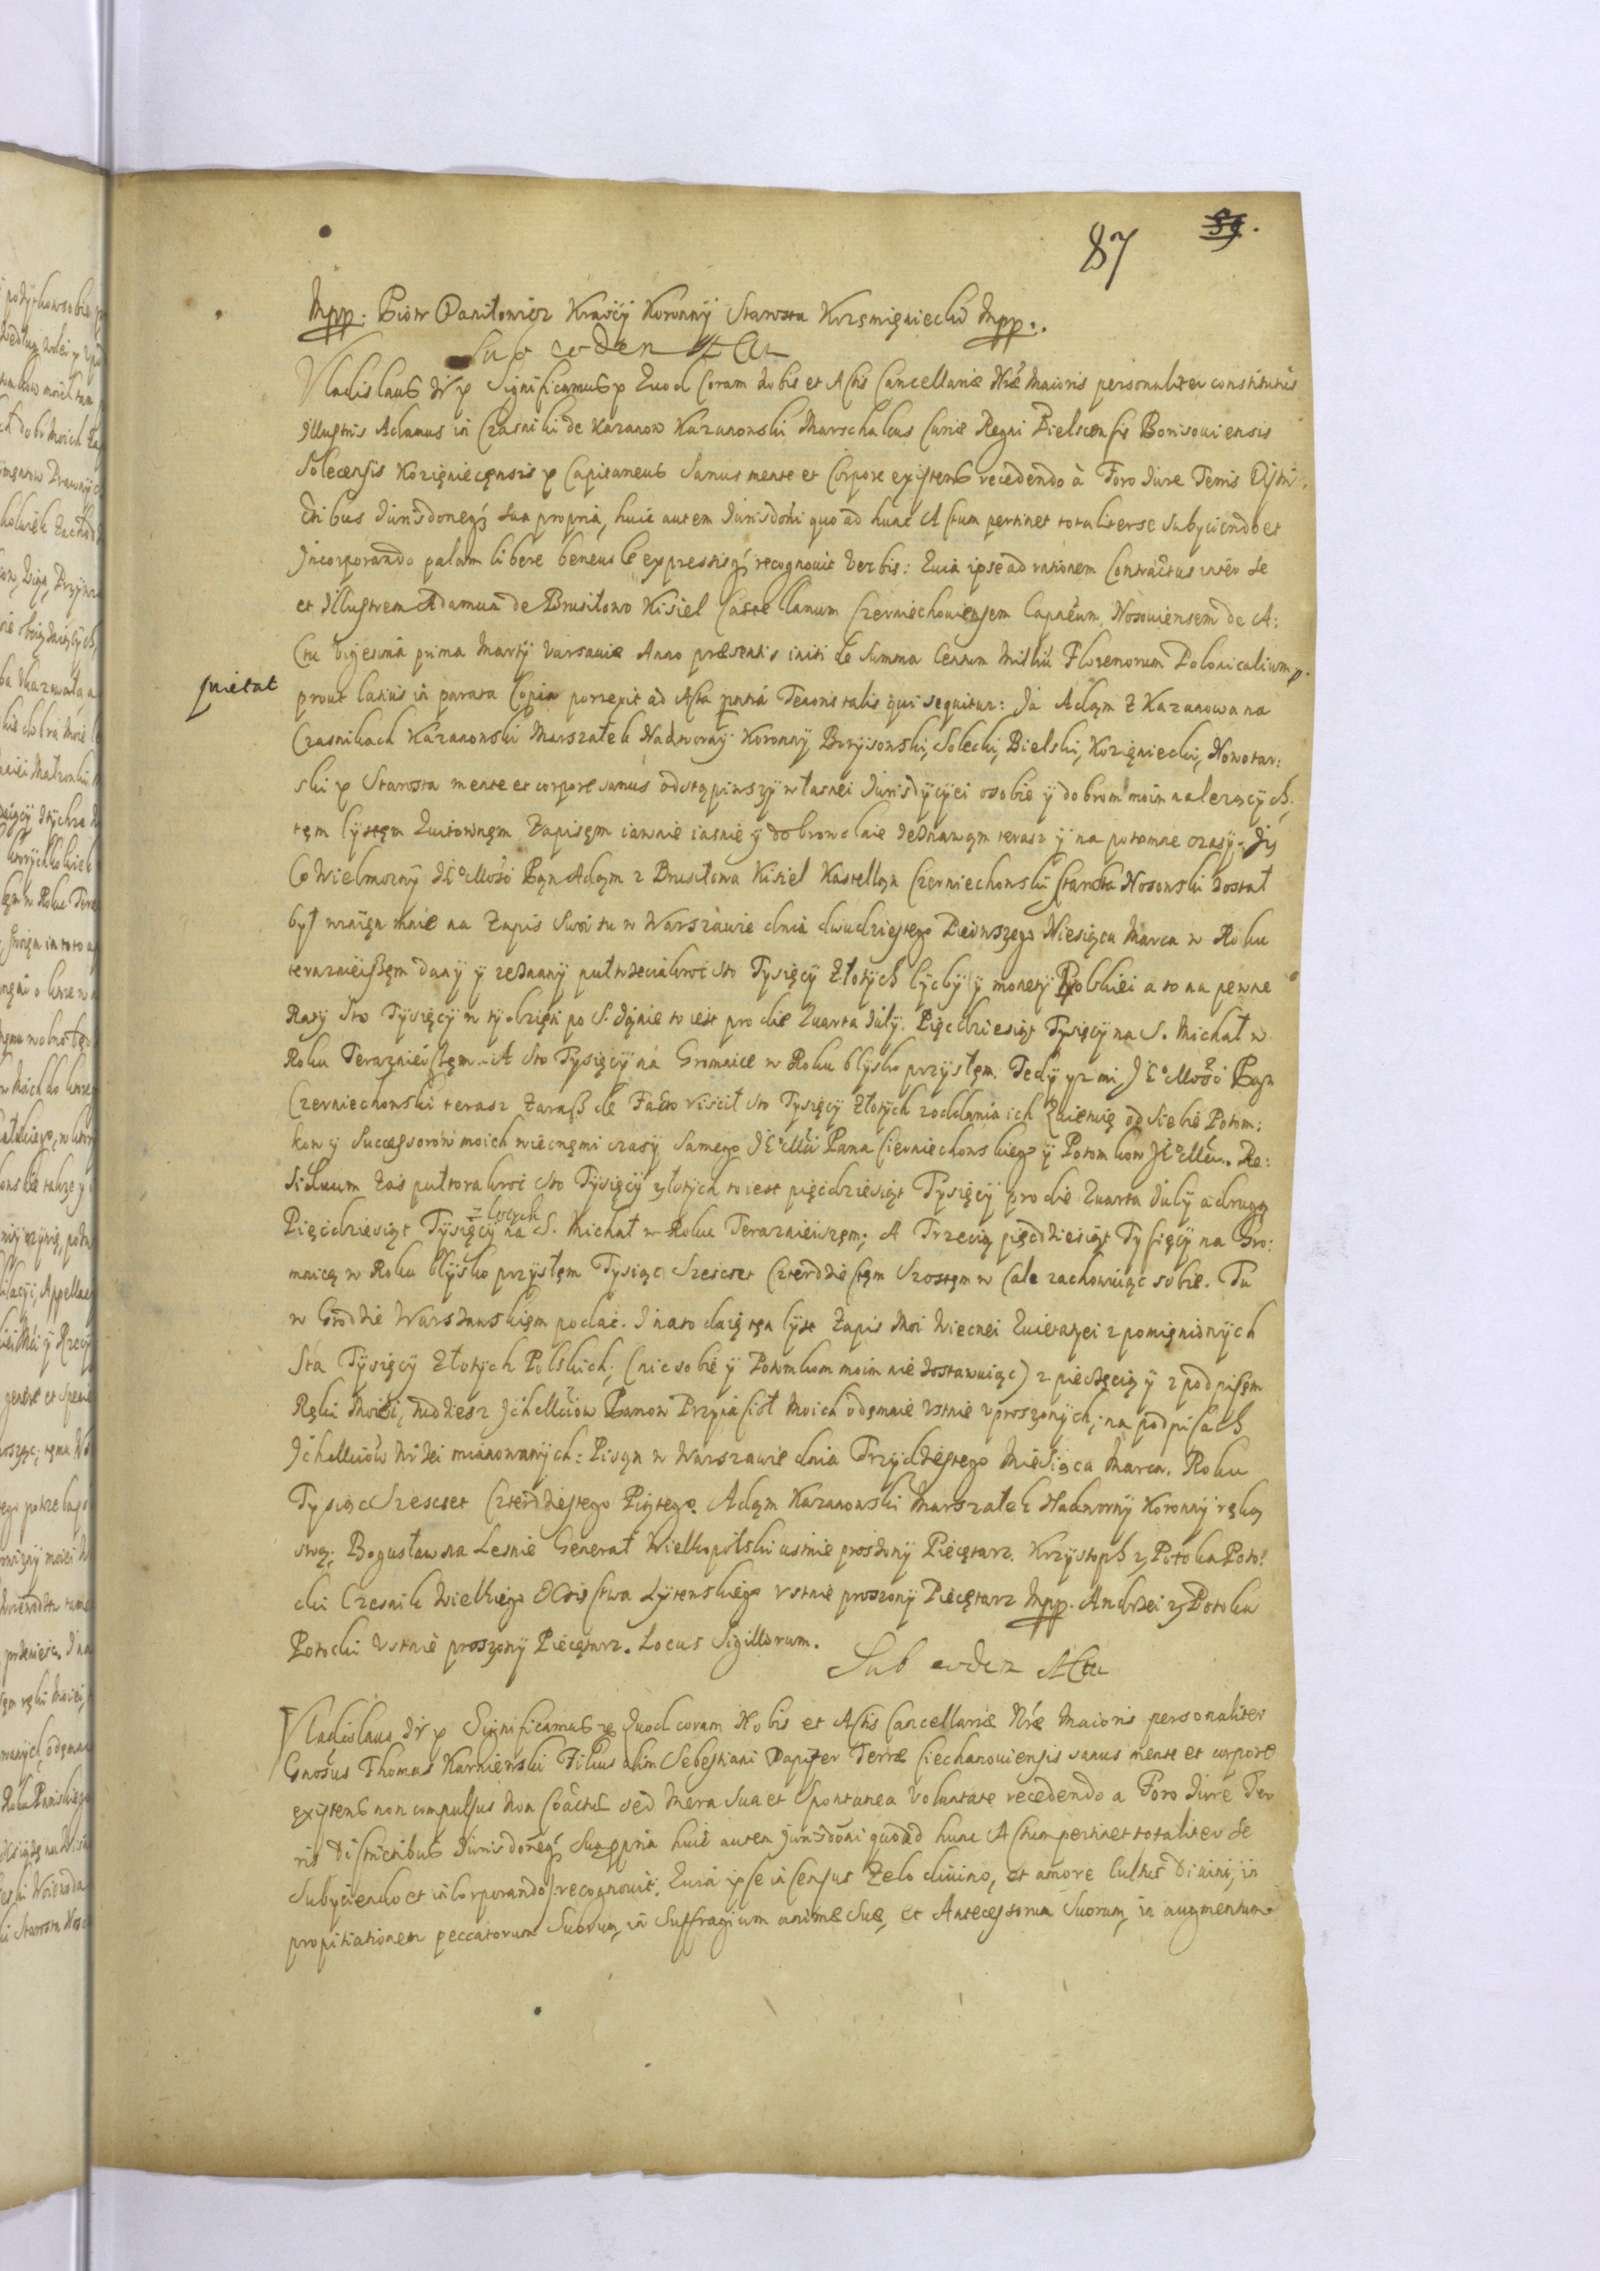 87 89.
Mpp. Piotr Daniłowicz Kraӱcy Koronny Starosta Krzemięniecki Mpp.
Sub eoden Actu
Vladislaus Dei Significamus Quod Coram Nobis et Actis Cancellariæ Nræ Maioris personaliter constitutus
Illustris Adamus in Czasniki de Kazanow Kazanowski Marschalcus Curiæ Regni Bielscensis Borisouiensis
Solecensis Kozięniecęnsis Capitaneus Sanus mente et Corpore existens recedendo à Foro Iure Terris Distri:
ctibus Iurisdoneq3 sua propria, huic autem Iurisdoni quo ad hunc Actum pertinet totaliter se Subyciendo et
Incorporando palam libere beneuole expressisq3 recognouit Verbis: Quia ipse ad rationem Contractus inter se
et Illustrem Adamum de Brusiłowo Kisiel Castellanum Czerniechouiensem Capneum, Nosouiensem de A:
Ctu Vigesima prima Martij Varsauiæ Anno præsentis initi de Summa Centum Milliu Florenorum Polonicalium
quietat
prout latius in parata Copia porrexit ad Acta pntia Tenoris talis qui sequitur: Ja Adąm z Kazanowa na
Czasnikach Kazanowski Marszałek Nadworny Koronny Boryisowski, Solecki, Bielski, Kozięniecki, Nowotar:
ski Starosta mente et corpore sanus odstąpiwszy własnei Iurisdycyei osobie y dobrom moim nalezących,
tęm lystęm Quitownęm Zapisęm iawnie iasnie y dobrowolnie Zeznawąm terasz y na potomne czasy. Iz
Co Wielmozny JE Mość Pąn Adąm z Brusiłowa Kisiel Kasztelląn Czerniechowski Starosta Nosowski został
był winięn mnie na Zapis Swoi tu w Warszawie dnia dwudziestego Pierwszego Miesiąca Marca w Roku
teraznieißęm dany y zeznany pułtrzeciakroć sto Tysięcy Złotych lyczby y monety Polskiei a to na pewne
Raty Sto Tysięcy w tydzięn po S. Iąnie to iest pro die Quarta July. Pięcdziesiąt Tysięcy na S. Michał w
Roku Teraznieißęm. A Sto Tysięcy na Gromnice w Roku blysko przysłęm. Tedy yz mi JE Mość Pąn
Czerniechowski terasz Zaraß de Facto Viscił sto Tysięcy Złotych z oddania ich Quietuię od siebie Potom:
kow y Succęssorow moich wiecznęmi czasy Samego JE Mci Pana Czerniechowskiego y Potomkow JE Mci. Re:
siduum Zas pułtorakroć sto Tysięcy złotych to iest pięcdziesiąt Tysięcy pro die Quarta July a drugą
złotych
Pięcdziesiąt Tysięcy na S. Michał w Roku Teraznieiszęm; A Trzecią pięcdziesiąt Tysięcy na Gro:
mnicą w Roku blysko przysłęm Tysiąc Szescset Czterdziestęm Szostęm w Cale zachowuiąc sobie. Tu
w Grodzie Warszawskięm podać. I na to daię tęn lyst Zapis Moi Wiecznei Quietatiei z pomięnionych
Sta Tysięcy Złotych Polskich, (nic sobie y Potomkom moim nie zostawuiąc) z pieczęcią y z podpisęm
Ręki Moiei, tudziesz Ichmciow Panow Przyiacioł Moich odęmnie Vstnie vproszonych, na podpisach
Ichmciow nizei mianowanych: Pisąn w Warszawie dnia Trzydziestego Miesiąca Marca. Roku
Tysiąc Szescset Czterdziestego Piątego. Adąm Kazanowski Marszałek Nadworny Koronny ręką
swą; Bogusław na Lesnie Generał Wielkopolski ustnie proszony Pieczętarz. Krzystoph z Potoka Poto:
cki Czesnik Wielkiego Xcistwa Lytewskiego Vstnie proszony Pieczętarz Mpp. Andrzei z Potoka
Potocki Vstnie proszony Pieczętarz. Locus Sigillorum.
Sub eoden Actu
Vladislaus Dei Significamus Quod coram Nobis et Actis Cancellariæ Nræ Maioris personaliter
Gnosus Thomas Karniewski Filius olim Sebestiani Dapifer Terræ Ciechanouiensis sanus mente et corpore
existens non compulsus non Coactus sed Mera Sua et Spontanea Voluntate recedendo a Foro Iure Ter
ris Districtibus Iurisdoneq3 Sua ppria huic autem Iurisdoni quo ad hunc Actum pertinet totaliter se
Subyciendo et inCorporando recognouit: Quia ipse inCensus Zelo diuino, et amore Cultus Diuini, in
propitiationem peccatorum Suorum, in Suffragium animæ Suæ, et Antecessorum Suorum, in augmentum